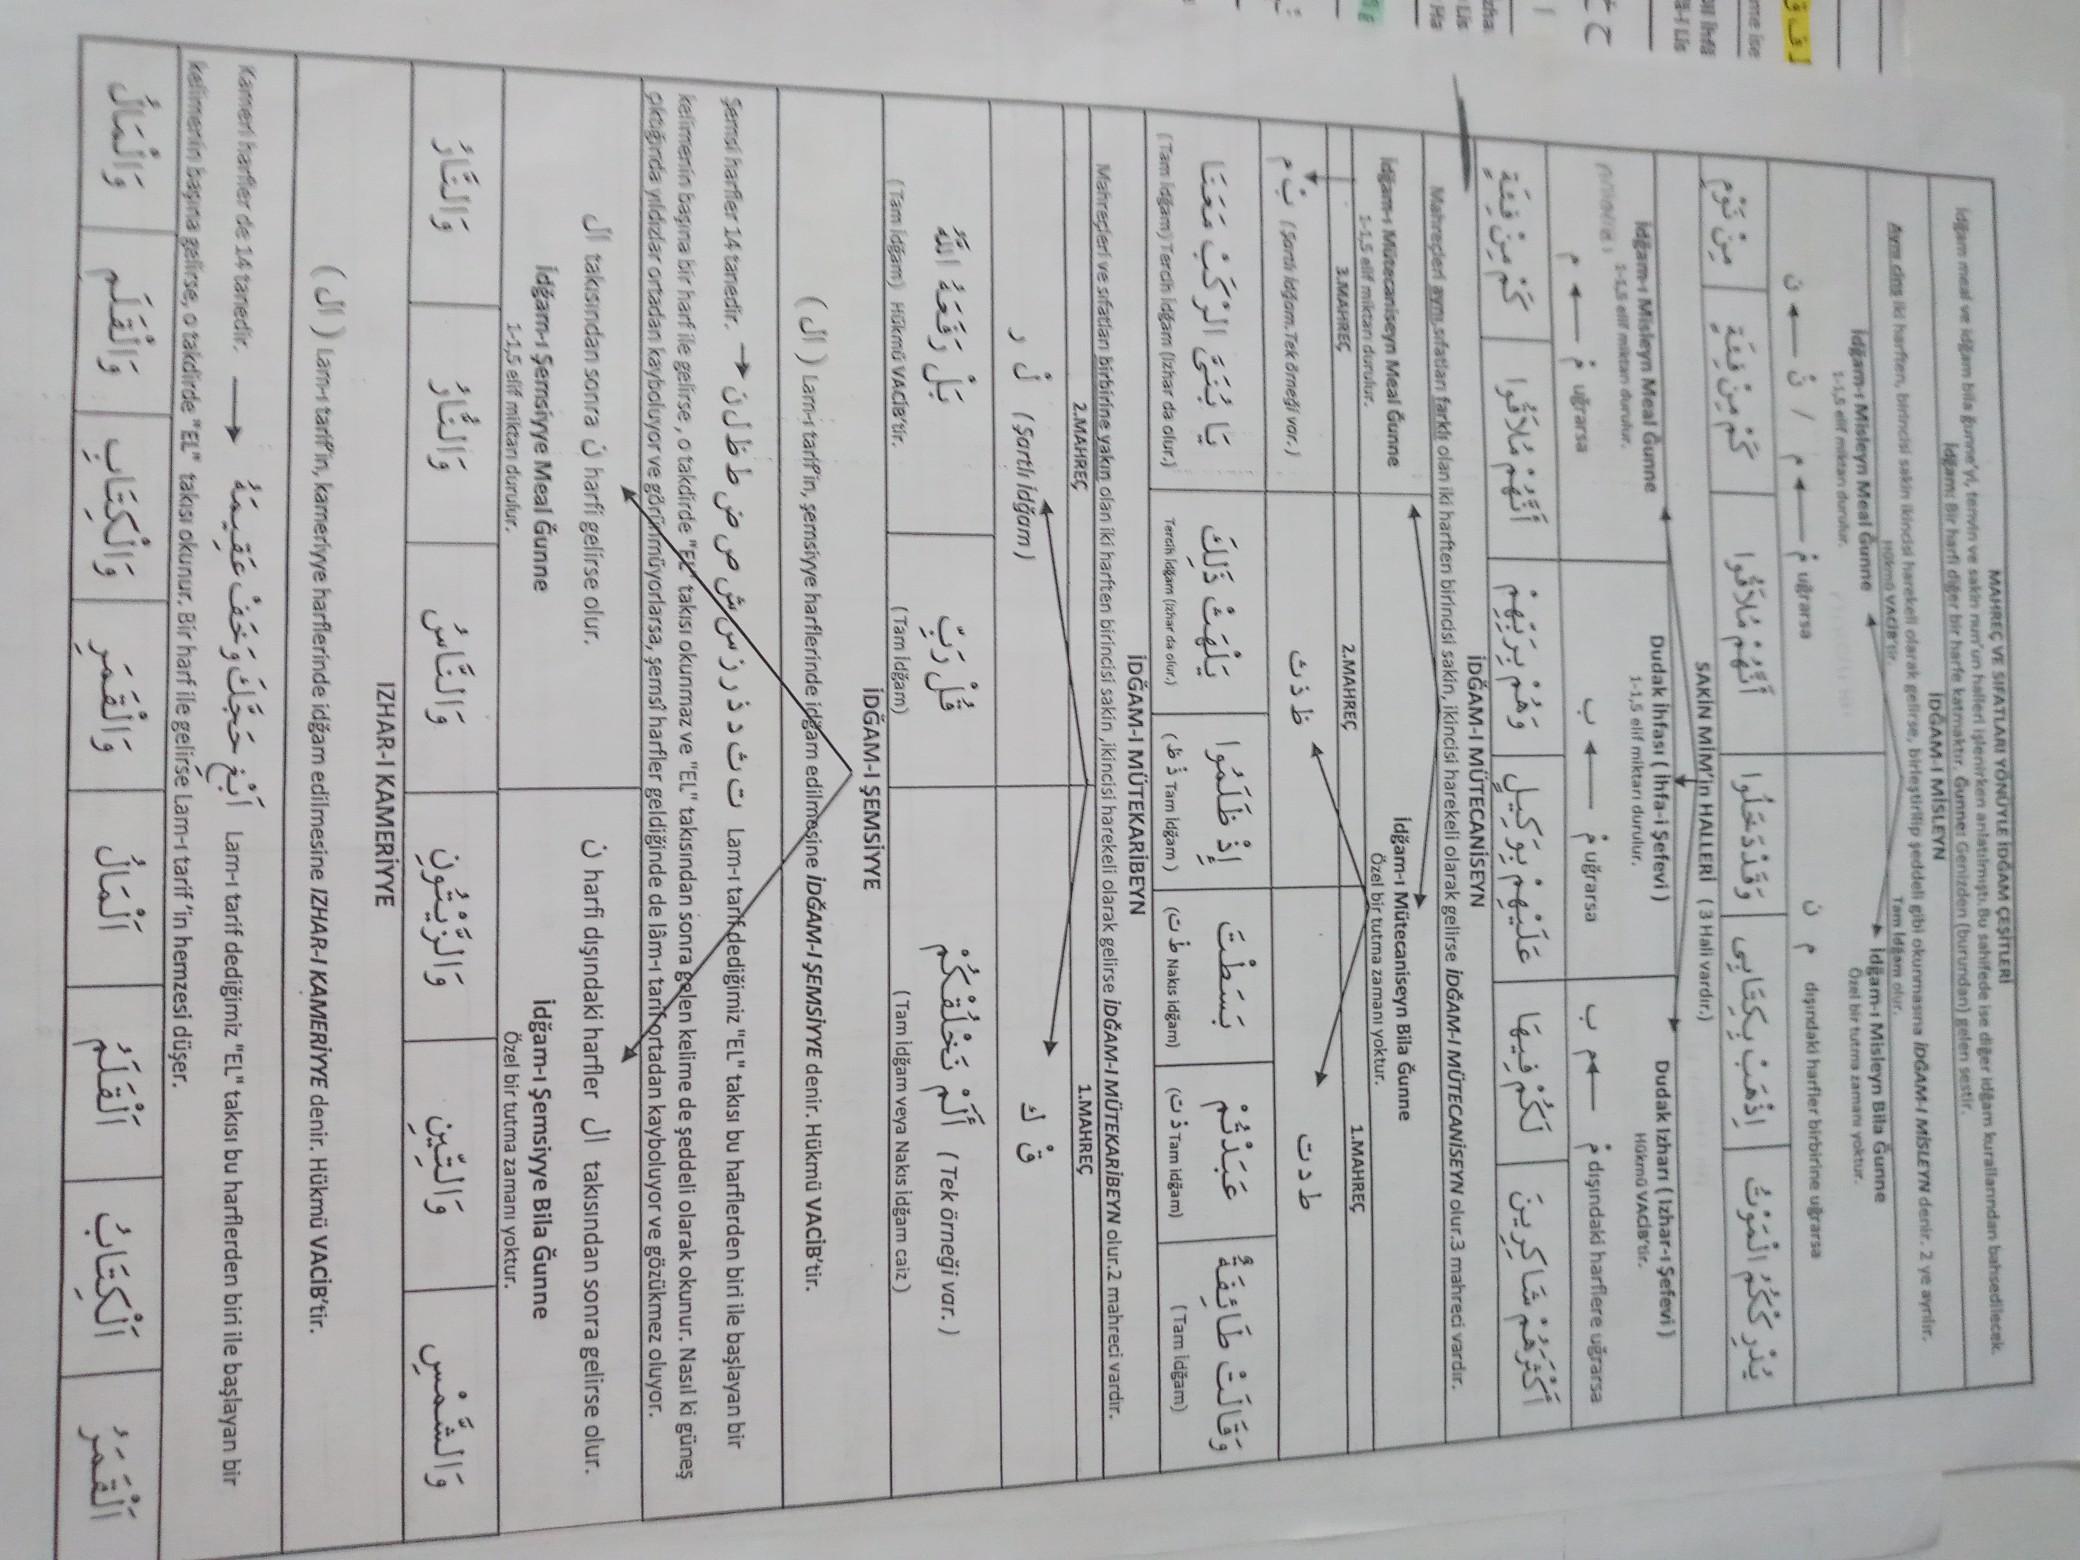 MAHREÇ VE SIFATLARI YÖNÜYLE İDĞAM ÇEŞİTLERİ
İdğam meal ve idğam bila ğunne'yi, tenvin ve sakin nun'un halleri işlenirken anlatılmıştı. Bu sahifede ise diğer idğam kurallarından bahsedilecek.
İdğam: Bir harfi diğer bir harfe katmaktır. Ğunne: Genizden (burundan) gelen sestir.
İDĞAM-I MİSLEYN
Aynı cins iki harften, birincisi sakin ikincisi harekeli olarak gelirse, birleştirilip şeddeli gibi okunmasına İDĞAM-I MİSLEYN denir. 2 ye ayrılır.
Hükmü VACİB'tir. Tam İdğam olur.
İdğam-ı Misleyn Meal Ğunne
1-1,5 elif miktarı durulur.
İdğam-ı Misleyn Bila Ğunne
Özel bir tutma zamanı yoktur.
ن ← نْ / م ← مْ uğrarsa
ن م dışındaki harfler birbirine uğrarsa
كَمْ مِنْ فِئَةٍ
أَنَّهُمْ مُلَاقُوا
وَقَدْ دَخَلُوا
اِذْهَبْ بِكِتَابِى
يُدْرِكْكُمُ الْمَوْتُ
SAKİN MİM'in HALLERİ ( 3 Hali vardır.)
İdğam-ı Misleyn Meal Ğunne
1-1,5 elif miktarı durulur.
Dudak İhfası ( İhfa-i Şefevi )
1-1,5 elif miktarı durulur.
Dudak Izharı ( Izhar-ı Şefevi )
Hükmü VACİB'tir.
م ← مْ uğrarsa
ب ← مْ uğrarsa
ب م ← مْ dışındaki harflere uğrarsa
كَمْ مِنْ فِئَةٍ
أَنَّهُمْ مُلَاقُوا
وَهُمْ بِرَبِّهِمْ
عَلَيْهِمْ بِوَكِيلٍ
لَكُمْ فِيهَا
أَكْثَرَهُمْ شَاكِرِينَ
İDĞAM-I MÜTECANİSEYN
Mahreçleri aynı, sıfatları farklı olan iki harften birincisi sakin, ikincisi harekeli olarak gelirse İDĞAM-I MÜTECANİSEYN olur.3 mahreci vardır.
İdğam-ı Mütecaniseyn Meal Ğunne
1-1,5 elif miktarı durulur.
İdğam-ı Mütecaniseyn Bila Ğunne
Özel bir tutma zamanı yoktur.
3.MAHREÇ
2.MAHREÇ
1.MAHREÇ
بْ م ( Şartlı İdğam.Tek örneği var.)
ظ ذ ث
ط د ت
يَا بُنَىَّ ارْكَبْ مَعَنَا
( Tam İdğam) Tercih İdğam (Izhar da olur.)
يَلْهَثْ ذَلِكَ
Tercih İdğam (Izhar da olur.)
إِذْ ظَلَمُوا
( ذْ ظ Tam İdğam )
بَسَطْتَ
( طْ ت Nakıs İdğam)
عَبَدْتُمْ
( دْ ت Tam İdğam)
وَقَالَتْ طَائِفَةٌ
( Tam İdğam)
İDĞAM-I MÜTEKARİBEYN
Mahreçleri ve sıfatları birbirine yakın olan iki harften birincisi sakin ,ikincisi harekeli olarak gelirse İDĞAM-I MÜTEKARİBEYN olur.2 mahreci vardır.
2.MAHREÇ
1.MAHREÇ
لْ ر ( Şartlı İdğam )
قْ ك
بَلْ رَفَعَهُ اللّٰهُ
( Tam İdğam) Hükmü VACİB'tir.
قُلْ رَبِّ
( Tam İdğam)
أَلَمْ نَخْلُقْكُمْ ( Tek örneği var. )
( Tam İdğam veya Nakıs İdğam caiz )
İDĞAM-I ŞEMSİYYE
( ال ) Lam-ı tarif'in, şemsiyye harflerinde idğam edilmesine İDĞAM-I ŞEMSİYYE denir. Hükmü VACİB'tir.
Şemsî harfler 14 tanedir. → ت ث د ذ ر ز س ش ص ض ط ظ ل ن Lam-ı tarif dediğimiz "EL" takısı bu harflerden biri ile başlayan bir
kelimenin başına bir harf ile gelirse , o takdirde "EL" takısı okunmaz ve "EL" takısından sonra gelen kelime de şeddeli olarak okunur. Nasıl ki güneş
çıktığında yıldızlar ortadan kayboluyor ve görünmüyorlarsa, şemsî harfler geldiğinde de lâm-ı tarif ortadan kayboluyor ve gözükmez oluyor.
ال takısından sonra ن harfi gelirse olur.
ن harfi dışındaki harfler ال takısından sonra gelirse olur.
İdğam-ı Şemsiyye Meal Ğunne
1-1,5 elif miktarı durulur.
İdğam-ı Şemsiyye Bila Ğunne
Özel bir tutma zamanı yoktur.
وَالنَّارُ
وَالنُّارُ
وَالنَّاسُ
وَالزَّيْتُونِ
وَالتِّينِ
وَالشَّمْسِ
IZHAR-I KAMERİYYE
( ال ) Lam-ı tarif'in, kameriyye harflerinde idğam edilmesine IZHAR-I KAMERİYYE denir. Hükmü VACİB'tir.
Kameri harfler de 14 tanedir. → اَبْغِ حَجَّكَ وَخَفْ عَقِيمَهُ Lam-ı tarif dediğimiz "EL" takısı bu harflerden biri ile başlayan bir
kelimenin başına gelirse, o takdirde "EL" takısı okunur. Bir harf ile gelirse Lam-ı tarif 'in hemzesi düşer.
وَالْمَالُ
وَالْقَلَمِ
وَالْكِتَابِ
وَالْقَمَرِ
اَلْمَالُ
اَلْقَلَمُ
اَلْكِتَابُ
اَلْقَمَرُ